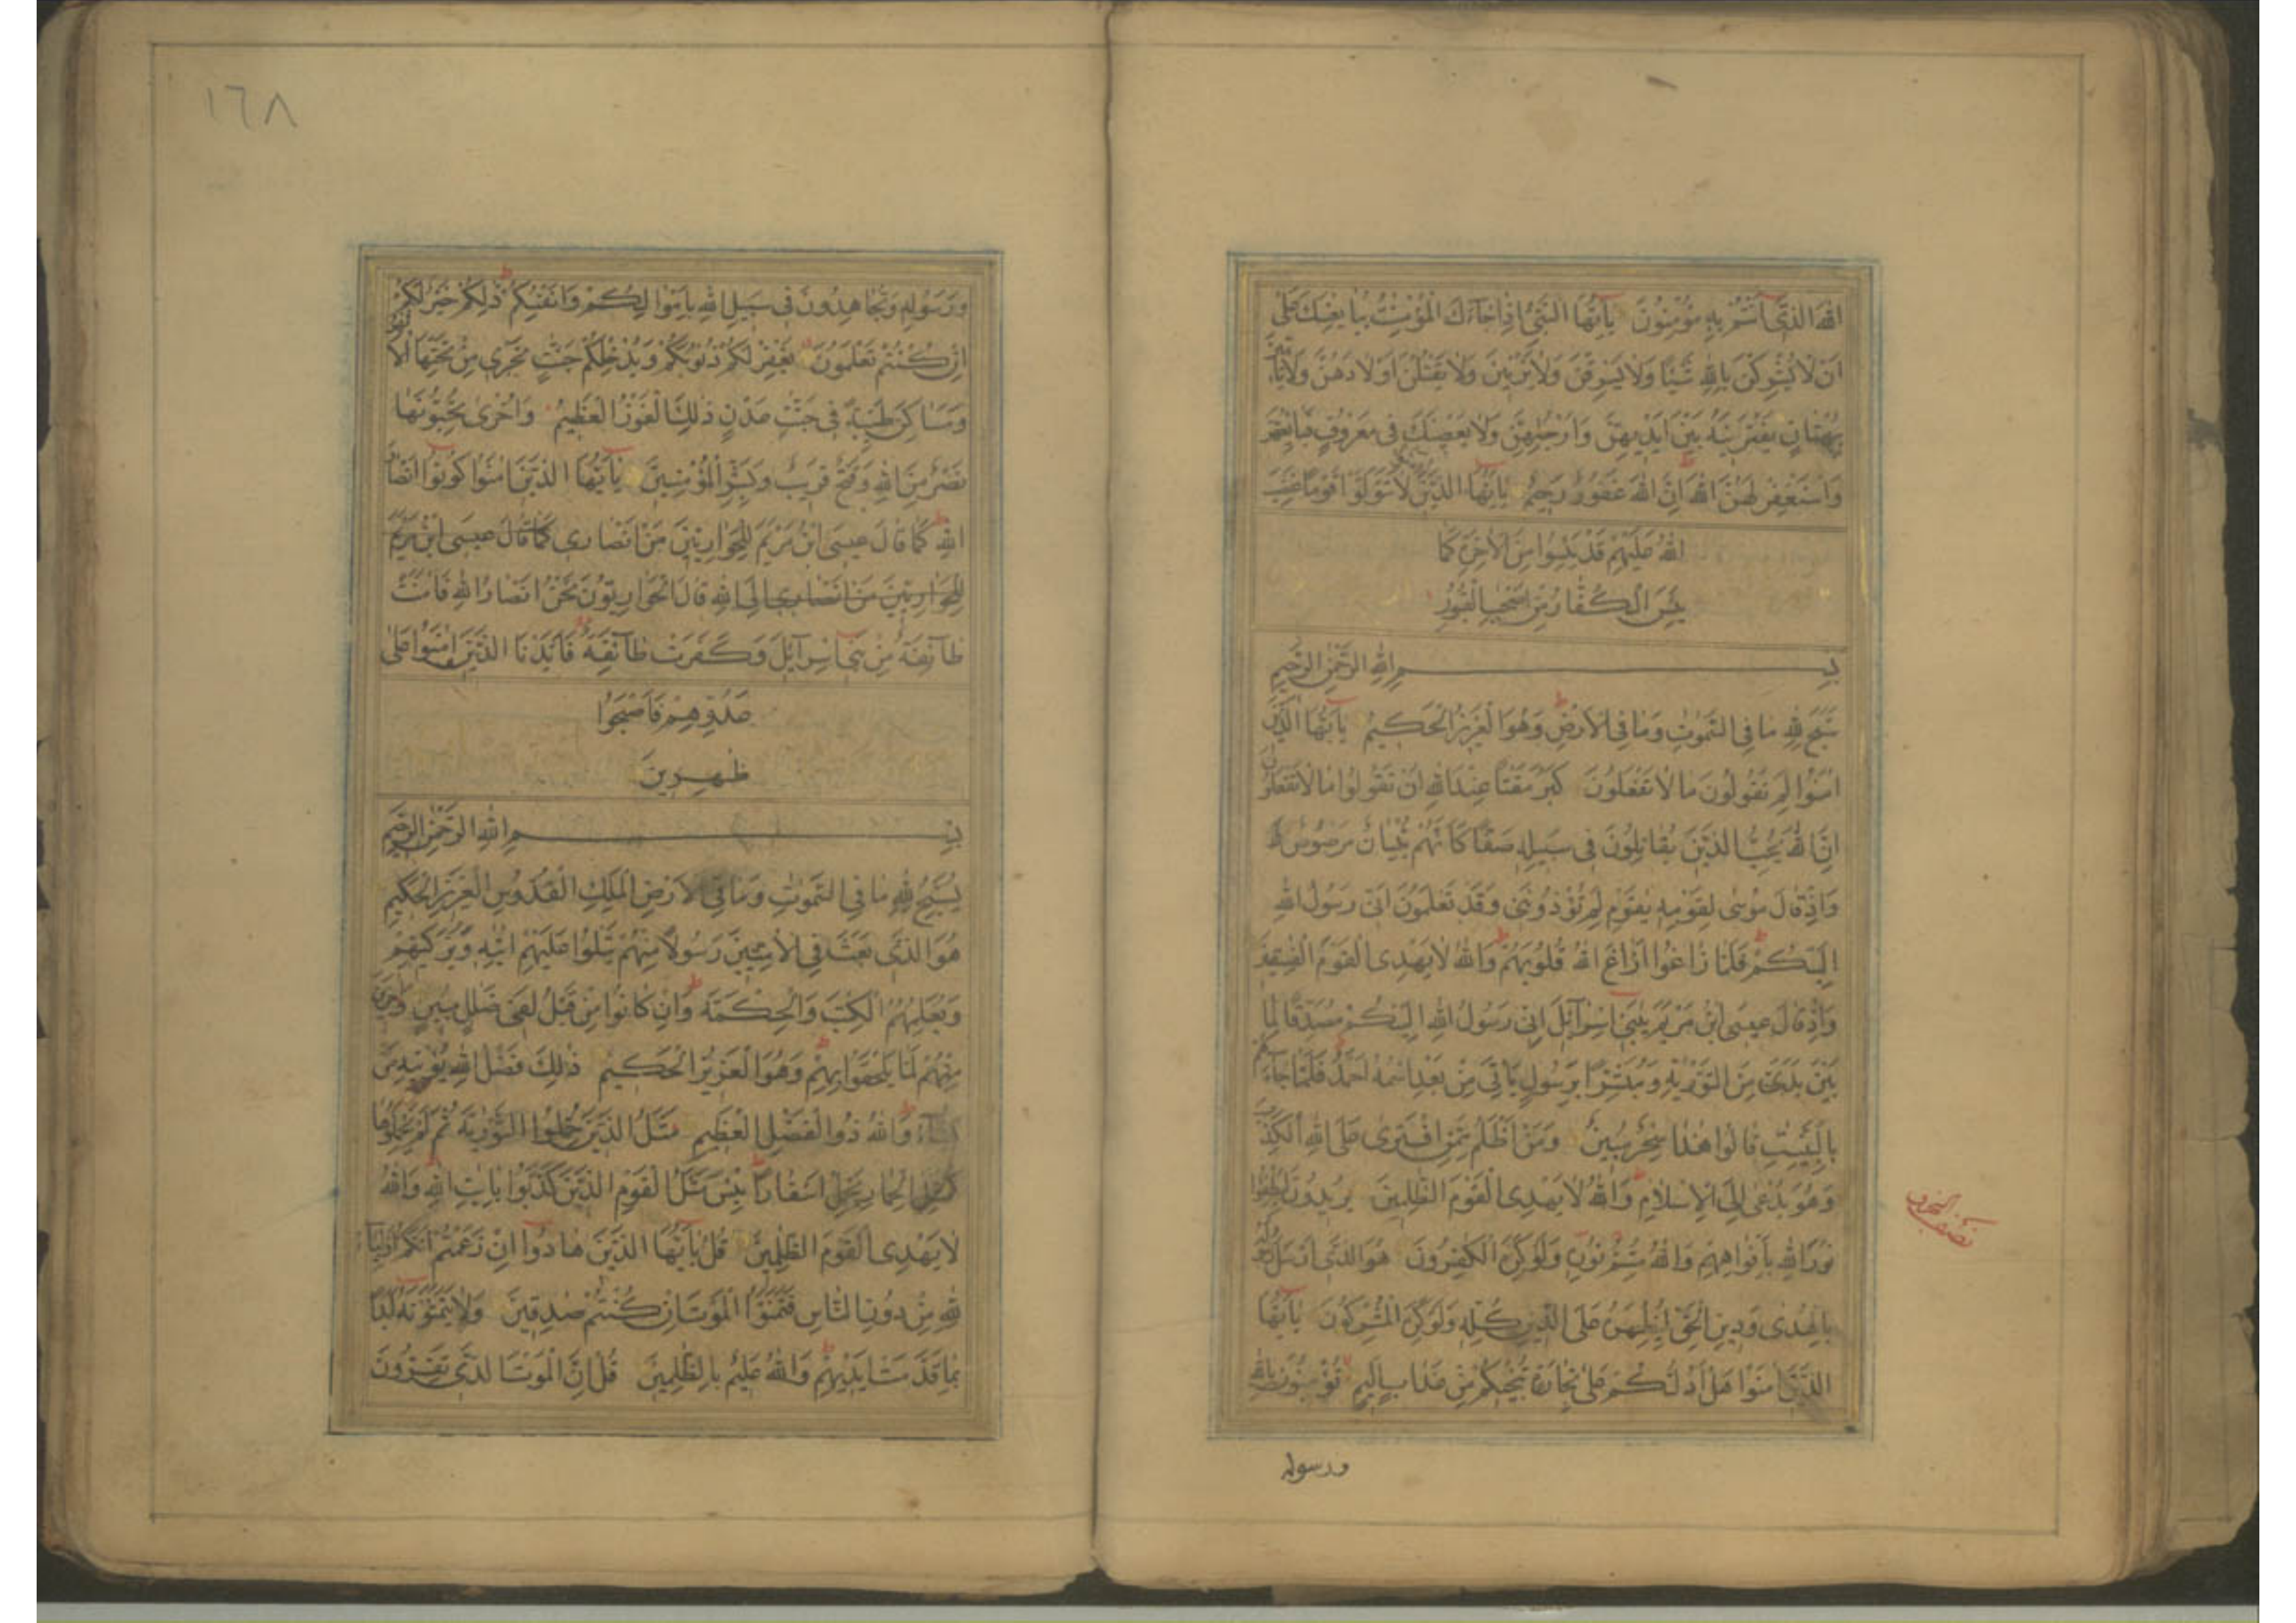 اللهَ الَّذِي أَنْتُمْ بِهِ مُؤْمِنُونَ يَا أَيُّهَا النَّبِيُّ إِذَا جَاءَكَ الْمُؤْمِنٰتُ يُبَايِعْنَكَ عَلَى
أَنْ لَا يُشْرِكْنَ بِاللهِ شَيْئًا وَلَا يَسْرِقْنَ وَلَا يَزْنِينَ وَلَا يَقْتُلْنَ أَوْلَادَهُنَّ وَلَا يَأْتِينَ
بِبُهْتَانٍ يَفْتَرِينَهُ بَيْنَ أَيْدِيهِنَّ وَأَرْجُلِهِنَّ وَلَا يَعْصِينَكَ فِي مَعْرُوفٍ فَبَايِعْهُنَّ
وَاسْتَغْفِرْ لَهُنَّ اللهَ إِنَّ اللهَ غَفُورٌ رَحِيمٌ يَا أَيُّهَا الَّذِينَ آمَنُوا لَا تَتَوَلَّوْا قَوْمًا غَضِبَ
اللهُ عَلَيْهِمْ قَدْ يَئِسُوا مِنَ الْآخِرَةِ كَمَا
يَئِسَ الْكُفَّارُ مِنْ أَصْحٰبِ الْقُبُورِ
بِسْمِ اللهِ الرَّحْمٰنِ الرَّحِيمِ
سَبَّحَ لِلّٰهِ مَا فِي السَّمٰوٰتِ وَمَا فِي الْأَرْضِ وَهُوَ الْعَزِيزُ الْحَكِيمُ يَا أَيُّهَا الَّذِينَ
آمَنُوا لِمَ تَقُولُونَ مَا لَا تَفْعَلُونَ كَبُرَ مَقْتًا عِنْدَ اللهِ أَنْ تَقُولُوا مَا لَا تَفْعَلُونَ
إِنَّ اللهَ يُحِبُّ الَّذِينَ يُقَاتِلُونَ فِي سَبِيلِهِ صَفًّا كَأَنَّهُمْ بُنْيَانٌ مَرْصُوصٌ
وَإِذْ قَالَ مُوسٰى لِقَوْمِهِ يٰقَوْمِ لِمَ تُؤْذُونَنِي وَقَدْ تَعْلَمُونَ أَنِّي رَسُولُ اللهِ
إِلَيْكُمْ فَلَمَّا زَاغُوا أَزَاغَ اللهُ قُلُوبَهُمْ وَاللهُ لَا يَهْدِي الْقَوْمَ الْفٰسِقِينَ
وَإِذْ قَالَ عِيسَى ابْنُ مَرْيَمَ يٰبَنِي إِسْرَائِيلَ إِنِّي رَسُولُ اللهِ إِلَيْكُمْ مُصَدِّقًا لِمَا
بَيْنَ يَدَيَّ مِنَ التَّوْرٰيةِ وَمُبَشِّرًا بِرَسُولٍ يَأْتِي مِنْ بَعْدِي اسْمُهُ أَحْمَدُ فَلَمَّا جَاءَهُمْ
بِالْبَيِّنٰتِ قَالُوا هٰذَا سِحْرٌ مُبِينٌ وَمَنْ أَظْلَمُ مِمَّنِ افْتَرٰى عَلَى اللهِ الْكَذِبَ
وَهُوَ يُدْعٰى إِلَى الْإِسْلَامِ وَاللهُ لَا يَهْدِي الْقَوْمَ الظّٰلِمِينَ يُرِيدُونَ لِيُطْفِئُوا
نُورَ اللهِ بِأَفْوَاهِهِمْ وَاللهُ مُتِمُّ نُورِهِ وَلَوْ كَرِهَ الْكٰفِرُونَ هُوَ الَّذِي أَرْسَلَ رَسُولَهُ
بِالْهُدٰى وَدِينِ الْحَقِّ لِيُظْهِرَهُ عَلَى الدِّينِ كُلِّهِ وَلَوْ كَرِهَ الْمُشْرِكُونَ يَا أَيُّهَا
الَّذِينَ آمَنُوا هَلْ أَدُلُّكُمْ عَلٰى تِجَارَةٍ تُنْجِيكُمْ مِنْ عَذَابٍ أَلِيمٍ تُؤْمِنُونَ بِاللهِ
ورسوله
١٦٨
وَرَسُولِهِ وَتُجَاهِدُونَ فِي سَبِيلِ اللهِ بِأَمْوَالِكُمْ وَأَنْفُسِكُمْ ذٰلِكُمْ خَيْرٌ لَكُمْ
إِنْ كُنْتُمْ تَعْلَمُونَ يَغْفِرْ لَكُمْ ذُنُوبَكُمْ وَيُدْخِلْكُمْ جَنّٰتٍ تَجْرِي مِنْ تَحْتِهَا الْأَنْهٰرُ
وَمَسَاكِنَ طَيِّبَةً فِي جَنّٰتِ عَدْنٍ ذٰلِكَ الْفَوْزُ الْعَظِيمُ وَأُخْرٰى تُحِبُّونَهَا
نَصْرٌ مِنَ اللهِ وَفَتْحٌ قَرِيبٌ وَبَشِّرِ الْمُؤْمِنِينَ يَا أَيُّهَا الَّذِينَ آمَنُوا كُونُوا أَنْصَارَ
اللهِ كَمَا قَالَ عِيسَى ابْنُ مَرْيَمَ لِلْحَوَارِيِّينَ مَنْ أَنْصَارِي كَمَا قَالَ عِيسَى ابْنُ مَرْيَمَ
لِلْحَوَارِيِّينَ مَنْ أَنْصَارِي إِلَى اللهِ قَالَ الْحَوَارِيُّونَ نَحْنُ أَنْصَارُ اللهِ فَآمَنَتْ
طَائِفَةٌ مِنْ بَنِي إِسْرَائِيلَ وَكَفَرَتْ طَائِفَةٌ فَأَيَّدْنَا الَّذِينَ آمَنُوا عَلٰى
عَدُوِّهِمْ فَأَصْبَحُوا
ظٰهِرِينَ
بِسْمِ اللهِ الرَّحْمٰنِ الرَّحِيمِ
يُسَبِّحُ لِلّٰهِ مَا فِي السَّمٰوٰتِ وَمَا فِي الْأَرْضِ الْمَلِكِ الْقُدُّوسِ الْعَزِيزِ الْحَكِيمِ
هُوَ الَّذِي بَعَثَ فِي الْأُمِّيِّينَ رَسُولًا مِنْهُمْ يَتْلُوا عَلَيْهِمْ اٰيٰتِهِ وَيُزَكِّيهِمْ
وَيُعَلِّمُهُمُ الْكِتٰبَ وَالْحِكْمَةَ وَإِنْ كَانُوا مِنْ قَبْلُ لَفِي ضَلٰلٍ مُبِينٍ وَآخَرِينَ
مِنْهُمْ لَمَّا يَلْحَقُوا بِهِمْ وَهُوَ الْعَزِيزُ الْحَكِيمُ ذٰلِكَ فَضْلُ اللهِ يُؤْتِيهِ مَنْ
يَشَاءُ وَاللهُ ذُو الْفَضْلِ الْعَظِيمِ مَثَلُ الَّذِينَ حُمِّلُوا التَّوْرٰيةَ ثُمَّ لَمْ يَحْمِلُوهَا
كَمَثَلِ الْحِمَارِ يَحْمِلُ أَسْفَارًا بِئْسَ مَثَلُ الْقَوْمِ الَّذِينَ كَذَّبُوا بِاٰيٰتِ اللهِ وَاللهُ
لَا يَهْدِي الْقَوْمَ الظّٰلِمِينَ قُلْ يَا أَيُّهَا الَّذِينَ هَادُوا إِنْ زَعَمْتُمْ أَنَّكُمْ أَوْلِيَاءُ
لِلّٰهِ مِنْ دُونِ النَّاسِ فَتَمَنَّوُا الْمَوْتَ إِنْ كُنْتُمْ صٰدِقِينَ وَلَا يَتَمَنَّوْنَهُ أَبَدًا
بِمَا قَدَّمَتْ أَيْدِيهِمْ وَاللهُ عَلِيمٌ بِالظّٰلِمِينَ قُلْ إِنَّ الْمَوْتَ الَّذِي تَفِرُّونَ